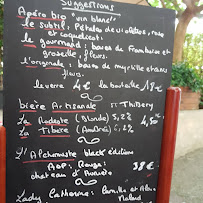 Suggestions
Apéro bio "vin blanc"
Le subtil, Pétale de violettes, rose
et coquelicot.
le gourmand: baies de framboise et
groseille, fleurs.
l'originale: baies de myrtille et ses
fleurs.
le verre 4€ la bouteille 18€
bière Artisanale St Thibery
La Modeste (Blonde) 5,2%
La Tibère (Ambrée) 6,2% 4,50€
L'Alchimiste black édition
AOP: Rouge: 38€
château d'
Lady Catherine: Camille et